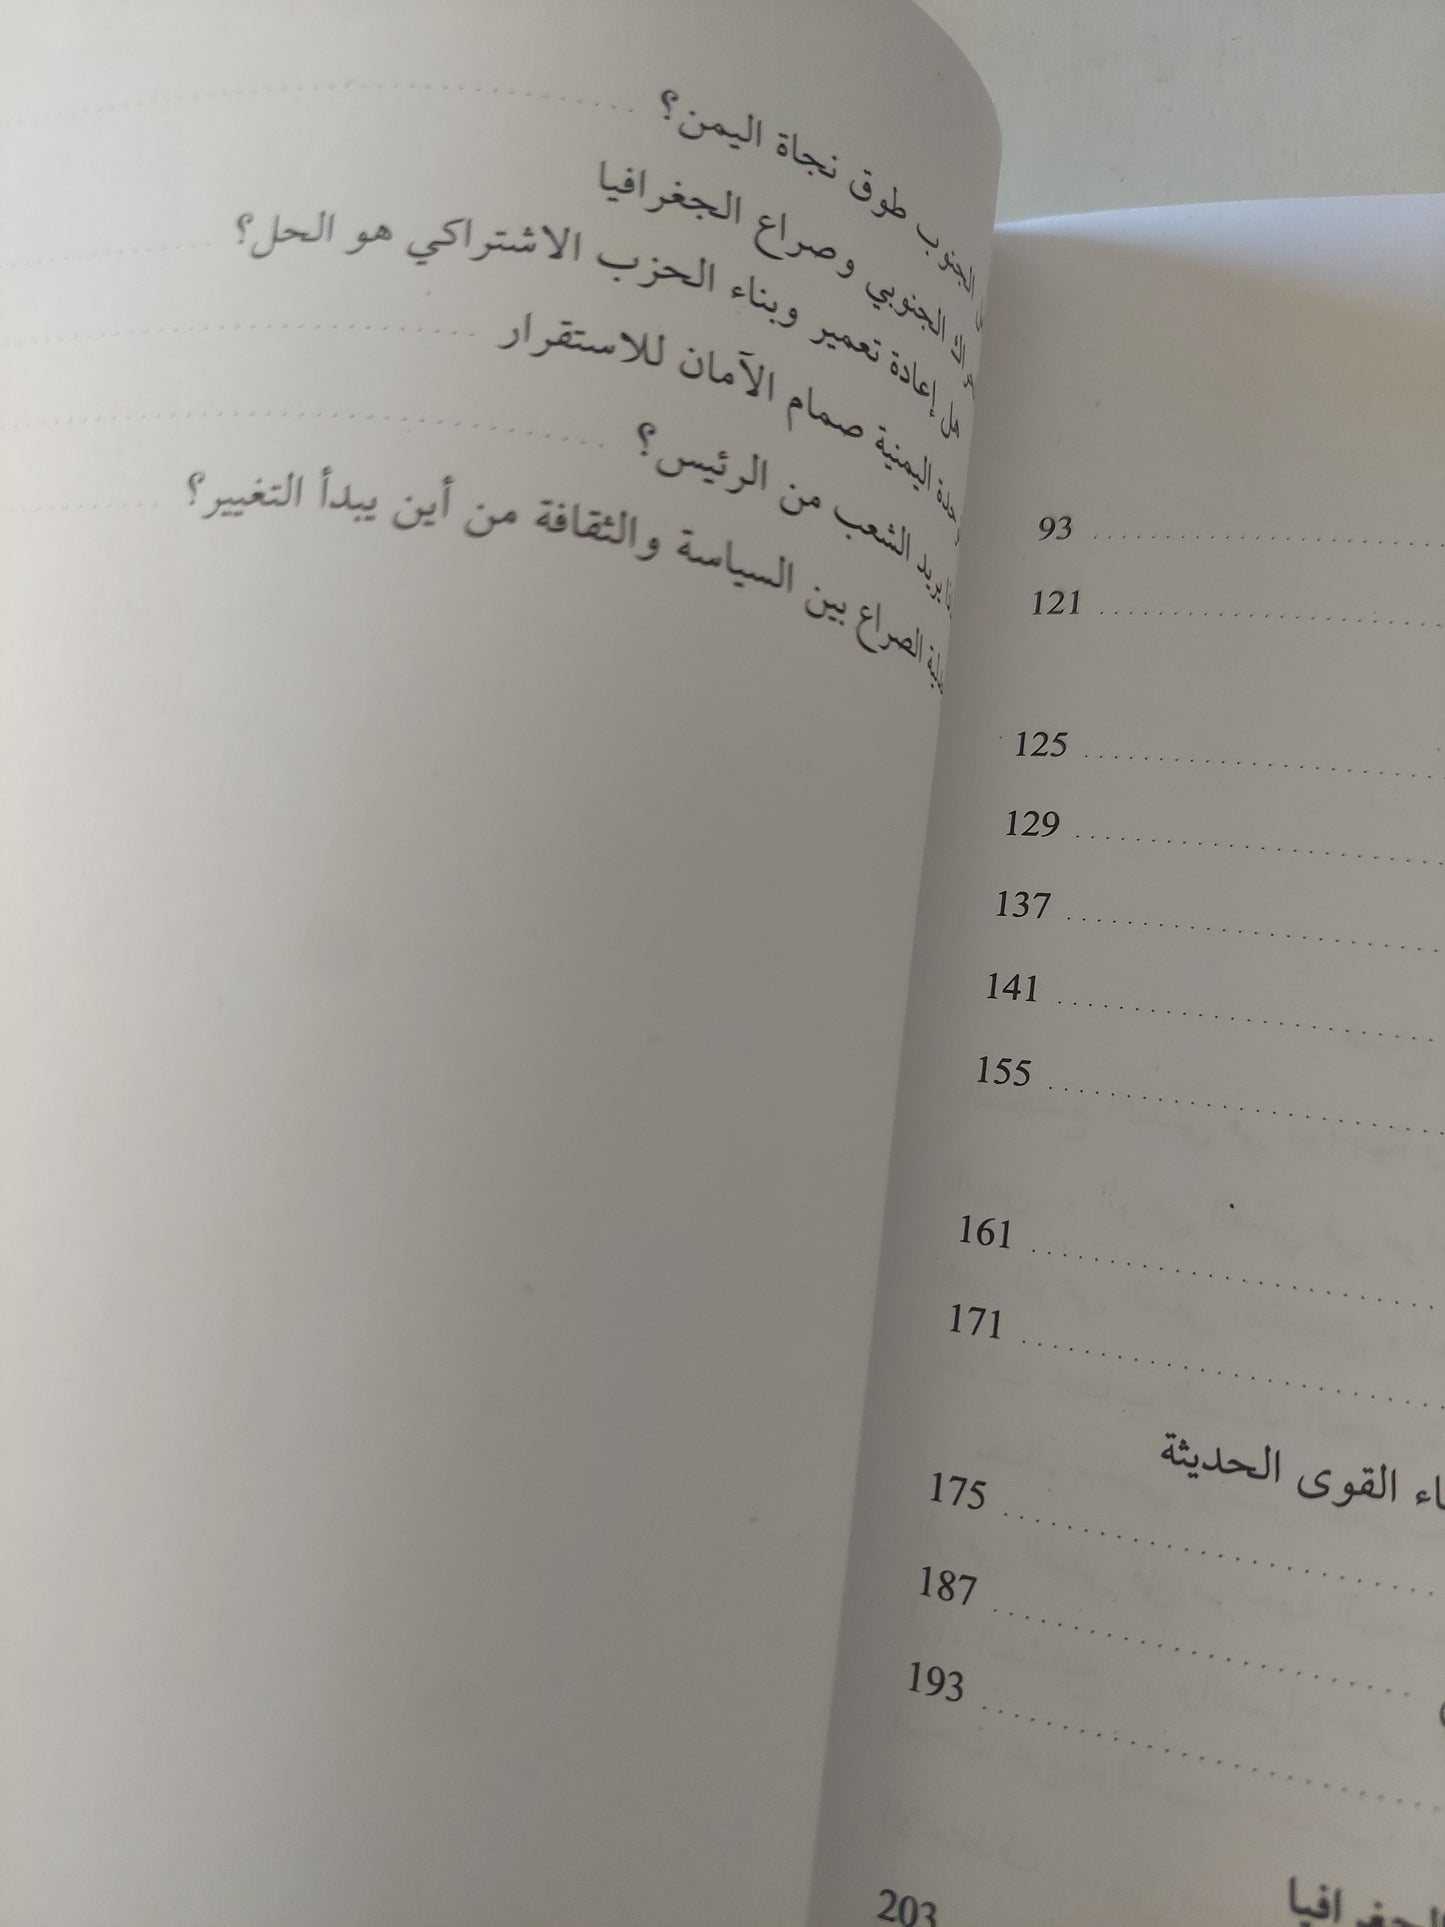 الجنوب طوق نجاة اليمن؟
الجنوبي وصراع الجغرافيا
هل إعادة تعمير وبناء الحزب الاشتراكي هو الحل؟
اليمنية صمام الآمان للاستقرار
يريد الشعب من الرئيس؟
الصراع بين السياسة والثقافة من أين يبدأ التغيير؟
93
121
125
129
137
141
155
161
171
القوى الحديثة
175
187
193
الجغرافيا
203